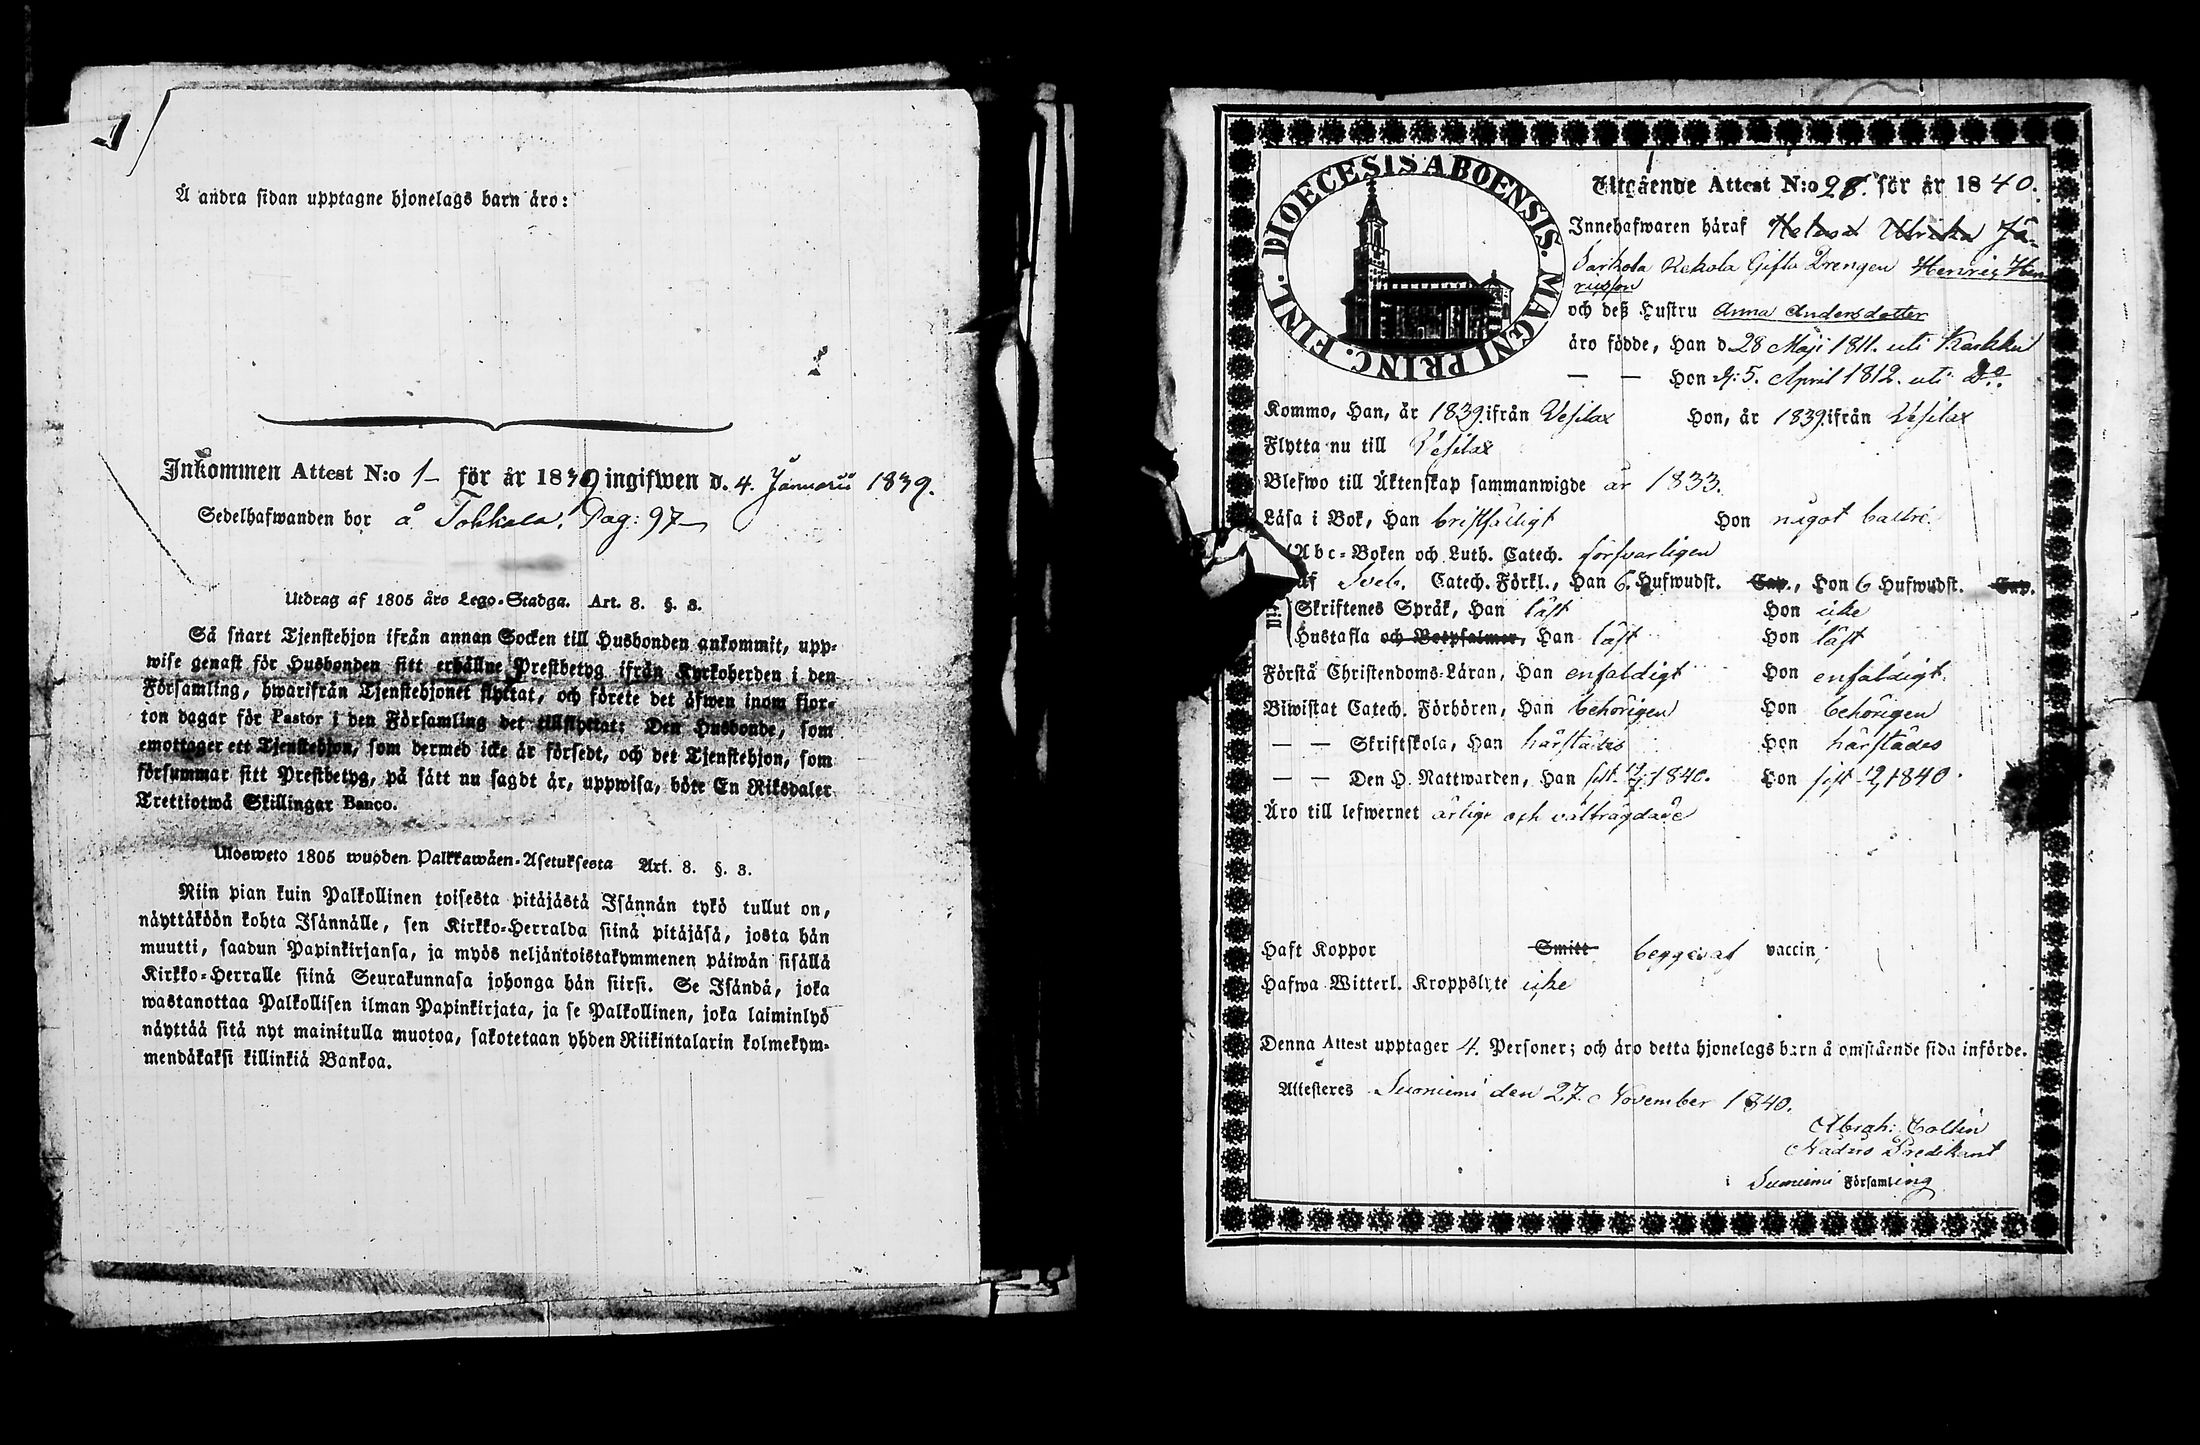 Å andra sidan upptagne hjonelags barn äro:
Inkommen Attest N:o 1 för år 1839 ingifwen d. 4. Januarii 1839.
Sedelhafwanden bor å Tokkala. Pag: 97
Utdrag af 1805 års Lego-Stadga. Art. 8. §. 3.
Så snart Tjenstehjon ifrån annan Socken till Husbonden ankommit, upp-
wise genast för Husbonden sitt erhållne Prestbetyg ifrån Kyrkoherden i den
Församling, hwarifrån Tjenstehjonet flyttat, och förete det äfwen inom fjor-
ton dagar för Pastor i den Församling det tillflyttat: Den Husbonde, som
emottager ett Tjenstehjon, som dermed icke är försedt, och det Tjenstehjon, som
försummar sitt Prestbetyg, på sätt nu sagdt är, uppwisa, böte En Riksdaler
Trettiotwå Skillingar Banco.
Ulosweto 1805 wuoden Palkkawäen-Asetuksesta Art. 8. §. 3.
Niin pian kuin Palkollinen toisesta pitäjästä Isännän tykö tullut on,
näyttäköön kohta Isännälle, sen Kirkko-Herralda siinä pitäjäsä, josta hän
muutti, saadun Papinkirjansa, ja myös neljäntoistakymmenen päiwän sisällä
Kirkko-Herralle siinä Seurakunnasa johonga hän siirsi. Se Isändä, joka
wastanottaa Palkollisen ilman Papinkirjata, ja se Palkollinen, joka laiminlyö
näyttää sitä nyt mainitulla muotoa, sakotetaan yhden Riikintalarin kolmekym-
mendäkaksi killinkiä Bankoa.
DIOECESIS ABOENSIS. MAGNI PRINC. FINL.
Utgående Attest N:o 28. för år 1840.
Innehafwaren häraf Helena Ulrika
Sarkola Kekola Gifta Drengen Henric Hen-
ricsson
och deß Hustru Anna Andersdotter
äro födde, Han d 28 Maji 1811. uti Karkku
— — Hon d: 5. April 1812. uti Do.
Kommo, Han, år 1839. ifrån Vesilax Hon, år 1839. ifrån Vesilax
Flytta nu till Vesilax
Blefwo till Äktenskap sammanwigde år 1833.
Läsa i Bok, Han bristfälligt Hon något battre
Abc-Boken och Luth. Catech. försvarligen
af Sveb. Catech. Förkl., Han 6. Hufwudst. Cap., Hon 6 Hufwudst. Cap.
Skriftenes Språk, Han läst Hon icke
Hustafla och Botpsalmer, Han läst Hon läst
Förstå Christendoms-Läran, Han enfaldigt Hon enfaldigt.
Biwistat Catech. Förhören, Han behörigen Hon behörigen
— — Skriftskola, Han härstädes Hon härstädes
— — Den H. Nattwarden, Han sist 1840. Hon sist 1840.
Äro till lefwernet ärlige och välfrägdade
Haft Koppor Smitt begge af vaccin;
Hafwa Witterl. Kroppslyte icke
Denna Attest upptager 4. Personer; och äro detta hjonelags barn å omstående sida införde.
Attesteres Suoniemi den 27. November 1840.
Abrah: Collin
Nådårs Predikant
i Suoniemi Församling